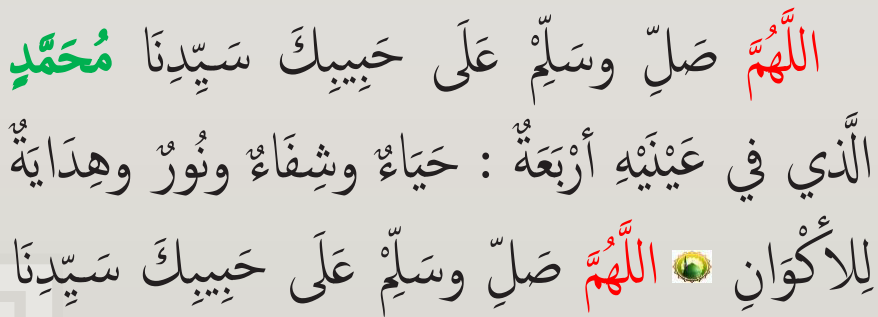 اللَّهُمَّ صَلِّ وسَلِّمْ عَلَى حَبِيبِكَ سَيِّدِنَا مُحَمَّدٍ
الَّذي في عَيْنَيْهِ أرْبَعَةٌ : حَيَاءٌ وشِفَاءٌ ونُورٌ وهِدَايَةٌ
لِلأكْوَانِ اللَّهُمَّ صَلِّ وسَلِّمْ عَلَى حَبِيبِكَ سَيِّدِنَا